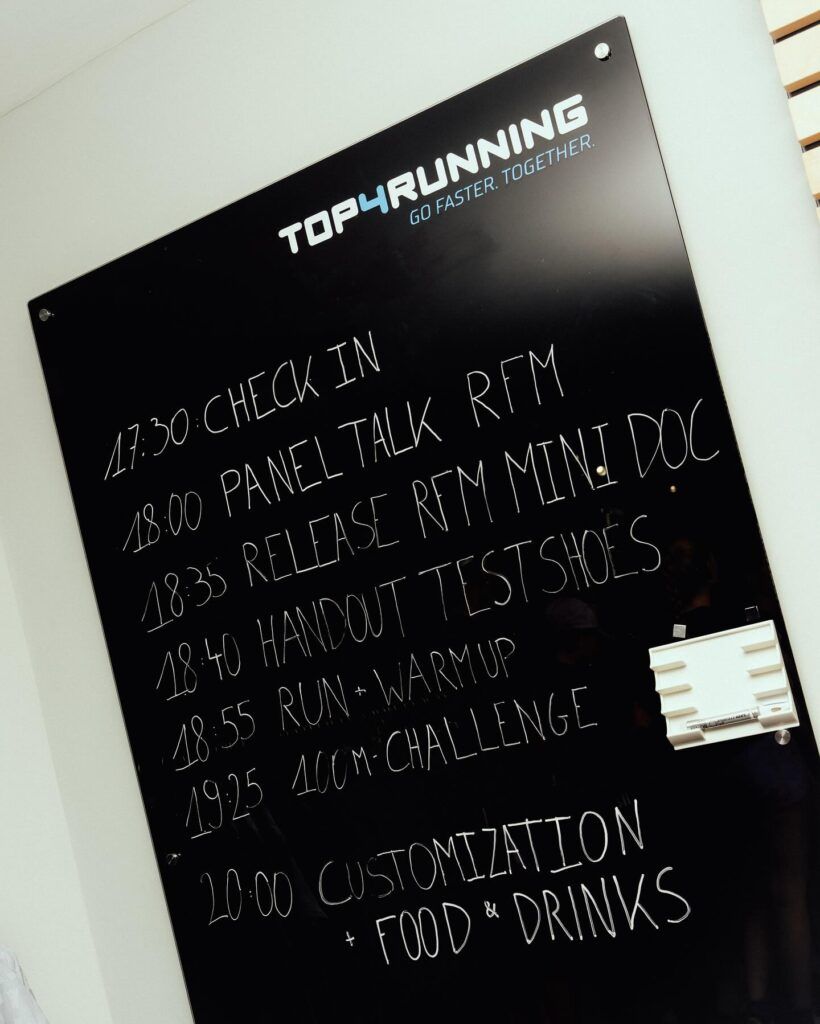 TOP4RUNNING
GO FASTER. TOGETHER.
17:30 CHECK IN
18:00 PANEL TALK RFM
18:35 RELEASE RFM MINI DOC
18:40 HANDOUT TESTSHOES
18:55 RUN + WARM UP
19:25 100M-CHALLENGE
20:00 CUSTOMIZATION
+ FOOD & DRINKS